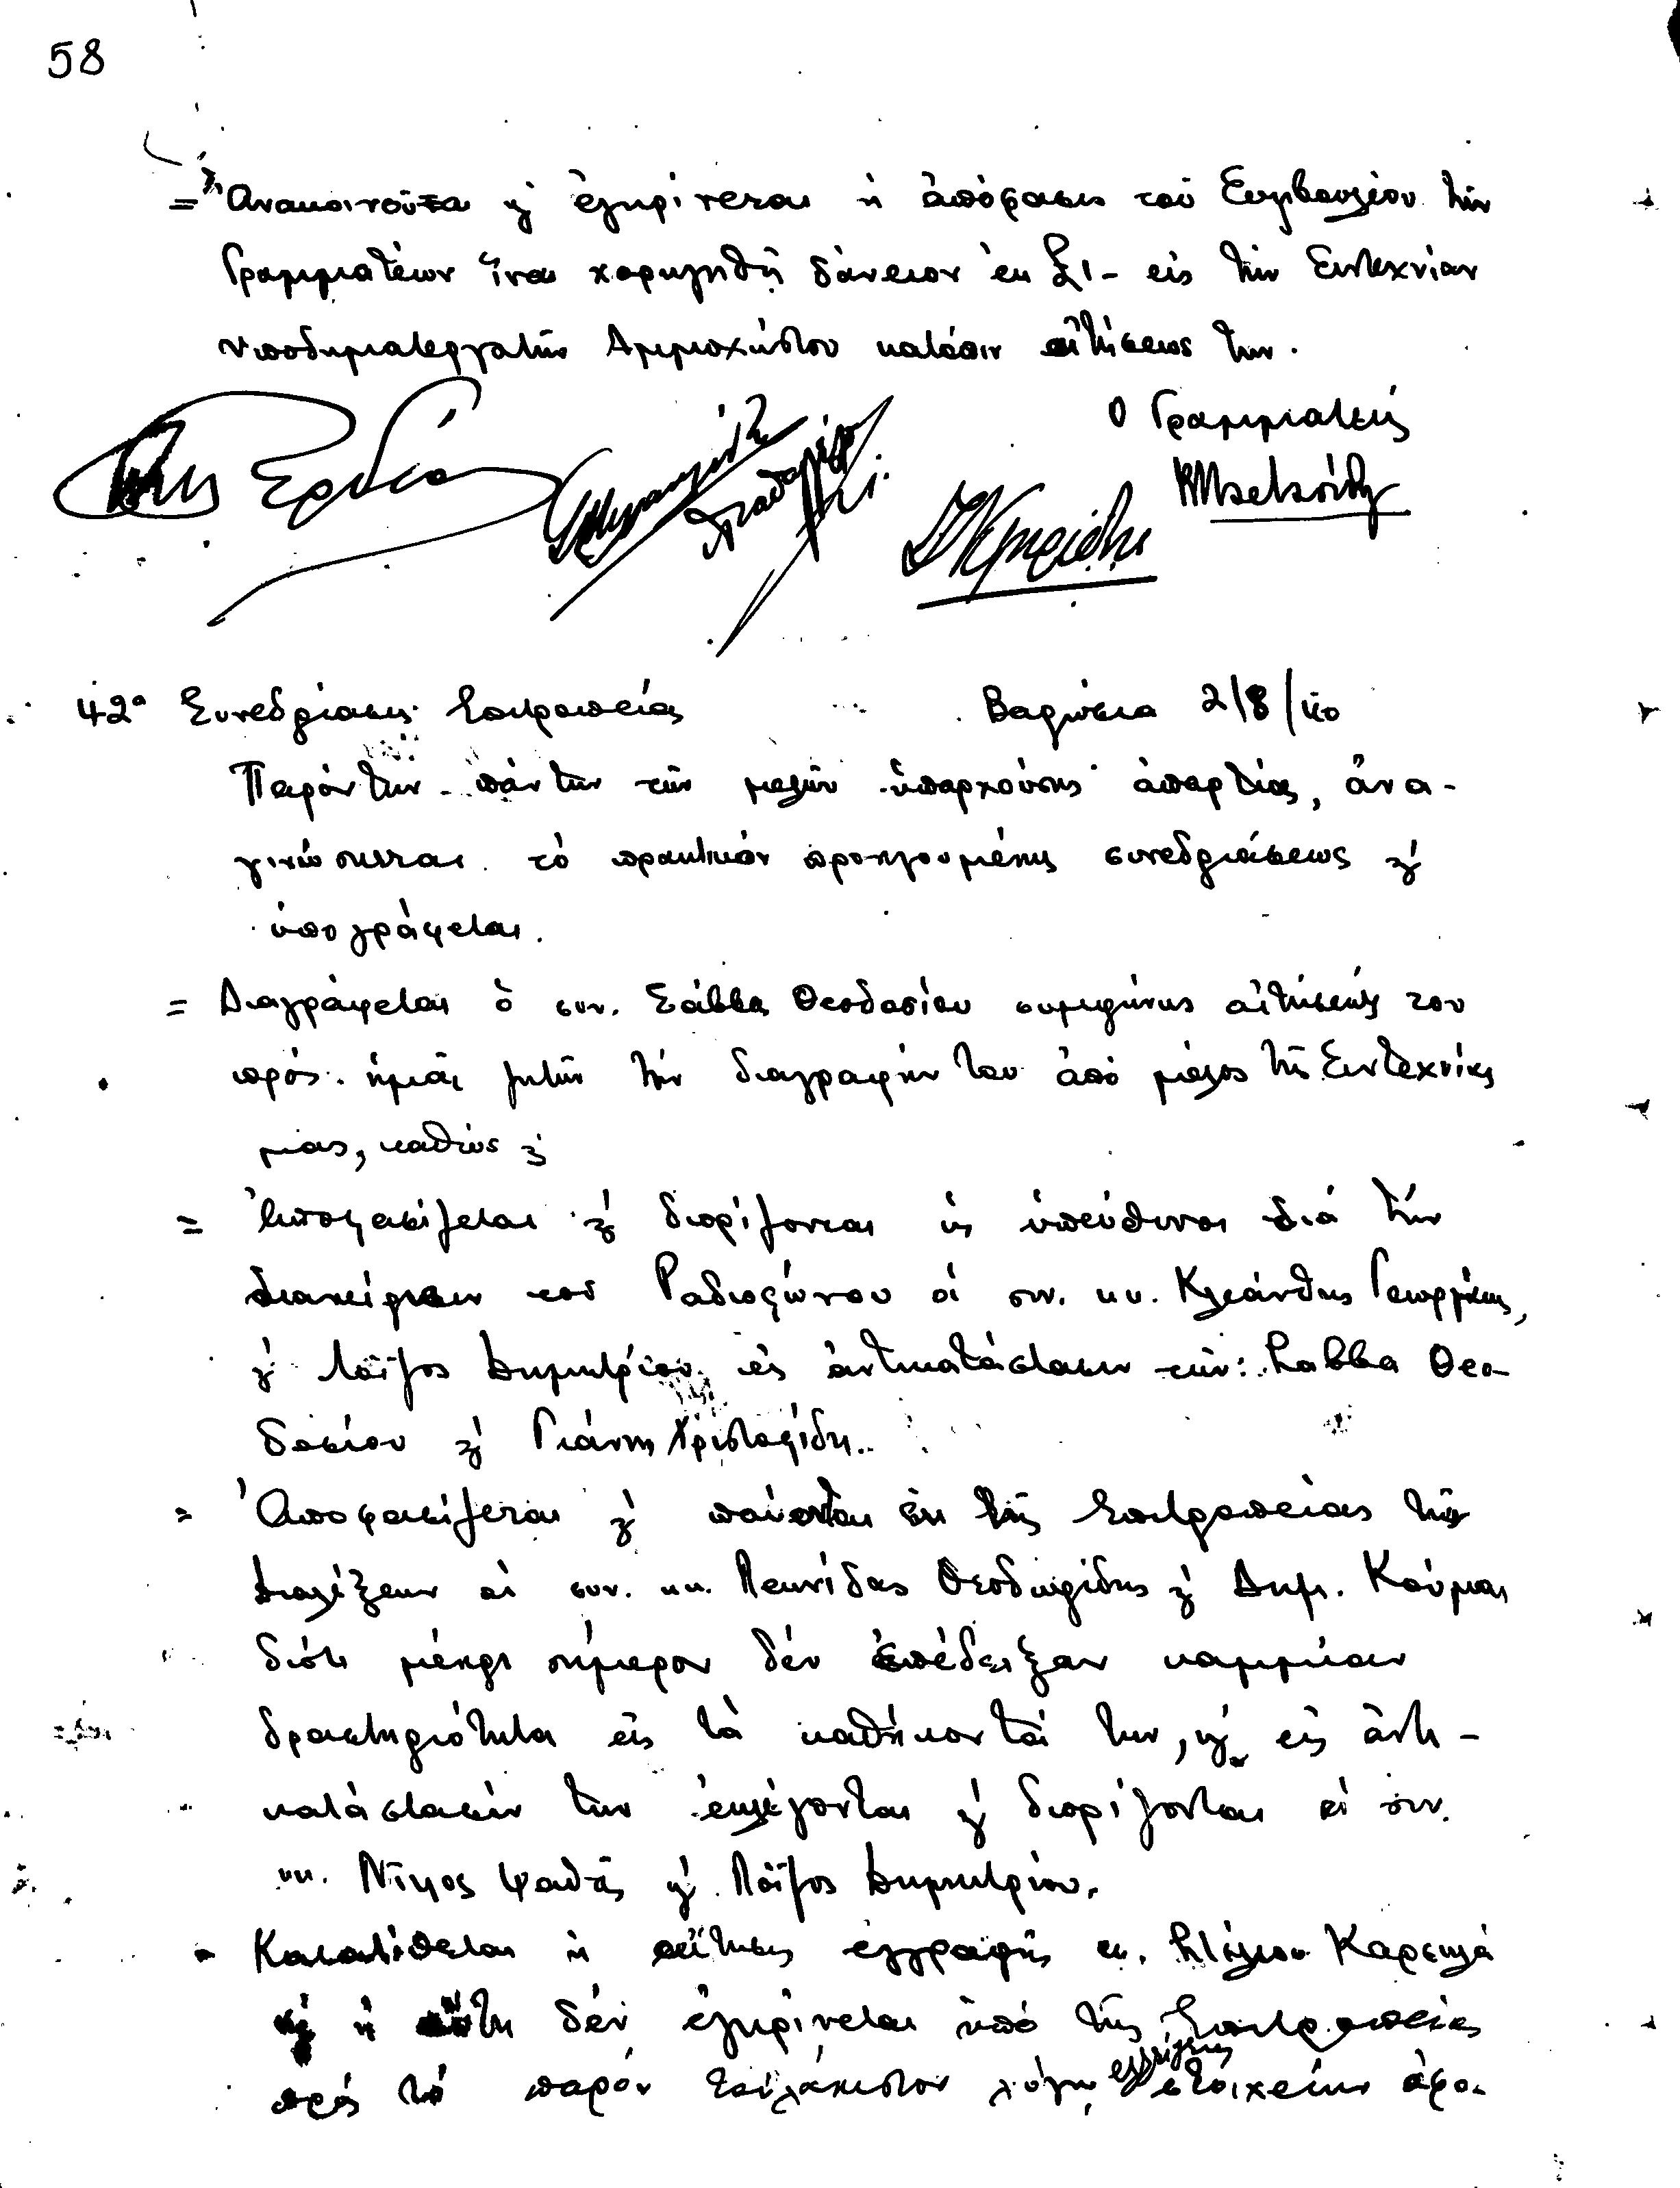 58
= Ἀνακοινοῦται κ' ἐγκρίνεται ἡ ἀπόφασις τοῦ Συμβουλίου τῶν
Γραμματέων ἵνα χορηγηθῇ δάνειον ἐκ £1- εἰς τὴν Συντεχνίαν
ὑποδηματεργατῶν Ἀμμοχώστου κατόπιν αἰτήσεώς των.
Ο Γραμματεύς
42α Συνεδρίασις Ἐπιτροπείας Βαρώσια 2/8/40
Παρόντων πάντων τῶν μελῶν ὑπαρχούσης ἀπαρτίας, ἀνα-
γινώσκεται τὸ πρακτικὸν προηγουμένης συνεδριάσεως κ'
ὑπογράφεται.
= Διαγράφεται ὁ συν. Σάββα Θεοδοσίου συμφώνως αἰτήσεώς του
πρὸς ἡμᾶς ζητῶν τὴν διαγραφήν του ἀπὸ μέλος τῆς Συντεχνίας
μας, καθὼς κ'
= Ἀποφασίζεται κ' διορίζονται ὡς ὑπεύθυνοι διὰ τὴν
διαχείρισιν τοῦ Ραδιοφώνου οἱ συν. κκ. Κλεάνθης Γεωργίου,
κ' Λοΐζος Δημητρίου εἰς ἀντικατάστασιν τῶν: Σάββα Θεο-
δοσίου κ' Γιάννη Χριστοφίδη.
= Ἀποφασίζεται κ' παύονται ἐκ τῆς Ἐπιτροπείας τῶν
Διαλέξεων οἱ συν. κκ. Λεωνίδας Θεοδωρίδης κ' Δημ. Κούμας
διότι μέχρι σήμερον δὲν ἐπέδειξαν καμμίαν
δραστηριότητα εἰς τὰ καθήκοντά των, κ' εἰς ἀντι-
κατάστασίν των ἐκλέγονται κ' διορίζονται οἱ συν.
κκ. Νῖκος Ψαθᾶς κ' Λοΐζος Δημητρίου.
= Κατατίθεται ἡ αἴτησις ἐγγραφῆς κ. Στέλιου Καρσιλά
κ' ἡ αὕτη δὲν ἐγκρίνεται ὑπὸ τῆς Ἐπιτροπείας
πρὸς τὸ παρὸν τοὐλάχιστον λόγῳ ἐλλείψεως στοιχείων ἀφο-